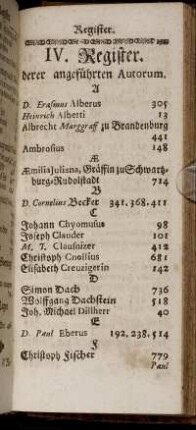 Register.
IV. Register.
derer angeführten Autorum.
A
D. Erasmus Alberus 305
Heinrich Alberti 13
Albrecht Marggraff zu Brandenburg
441
Ambrosius 148
Æ
Æmilia Juliana, Gräffin zu Schwartz-
burg-Rudolstadt 714
B
D. Cornelius Becker 341. 368. 411
C
Johann Chyomusus 98
Joseph Clauder 101
M. T. Clausnizer 412
Christoph Cnollius 681
Elisabeth Creuzigerin 142
D
Simon Dach 736
Wolffgang Dachstein 518
Joh. Michael Dillherr 40
E
D. Paul Eberus 192. 238. 514
F
Christoph Fischer 779
Paul